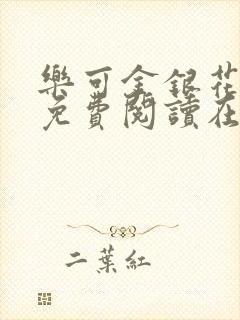 樂可金銀花
免費閱讀在
二葉紅